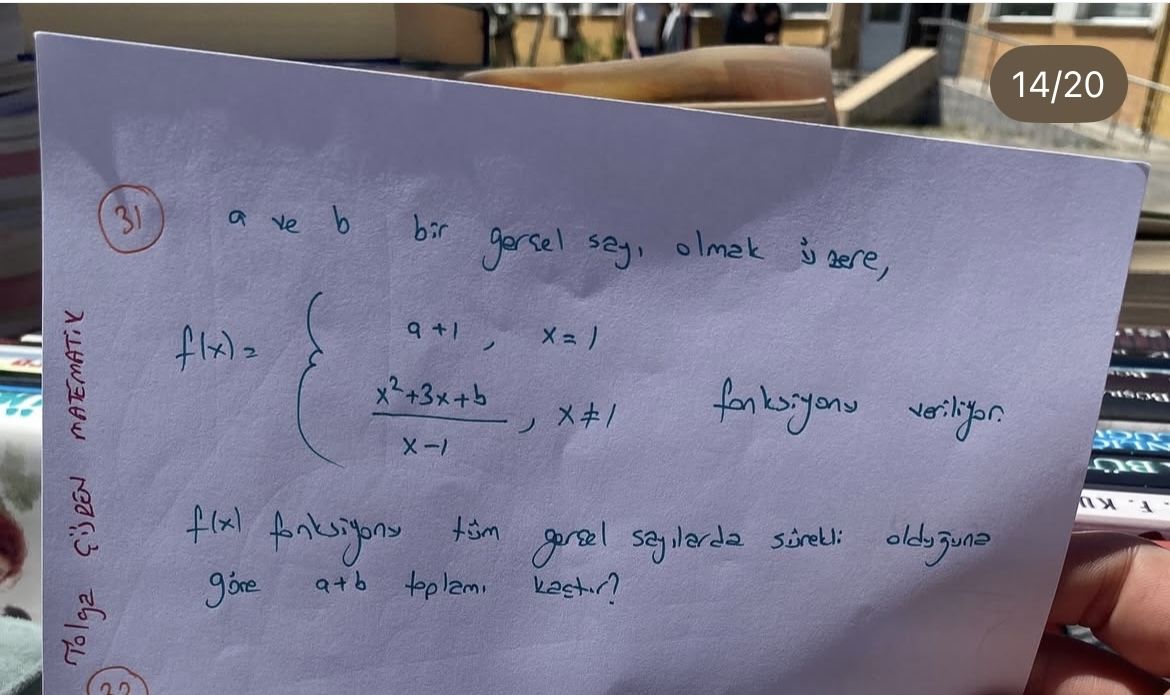 14/20
31
a ve b bir gerçel sayı olmak üzere,
f(x) =
a+1, x=1
x²+3x+b
x-1
, x≠1
fonksiyonu veriliyor.
f(x) fonksiyonu tüm gerçel sayılarda sürekli olduğuna
göre a+b toplamı kaçtır?
Tolga ÇÜREN MATEMATİK